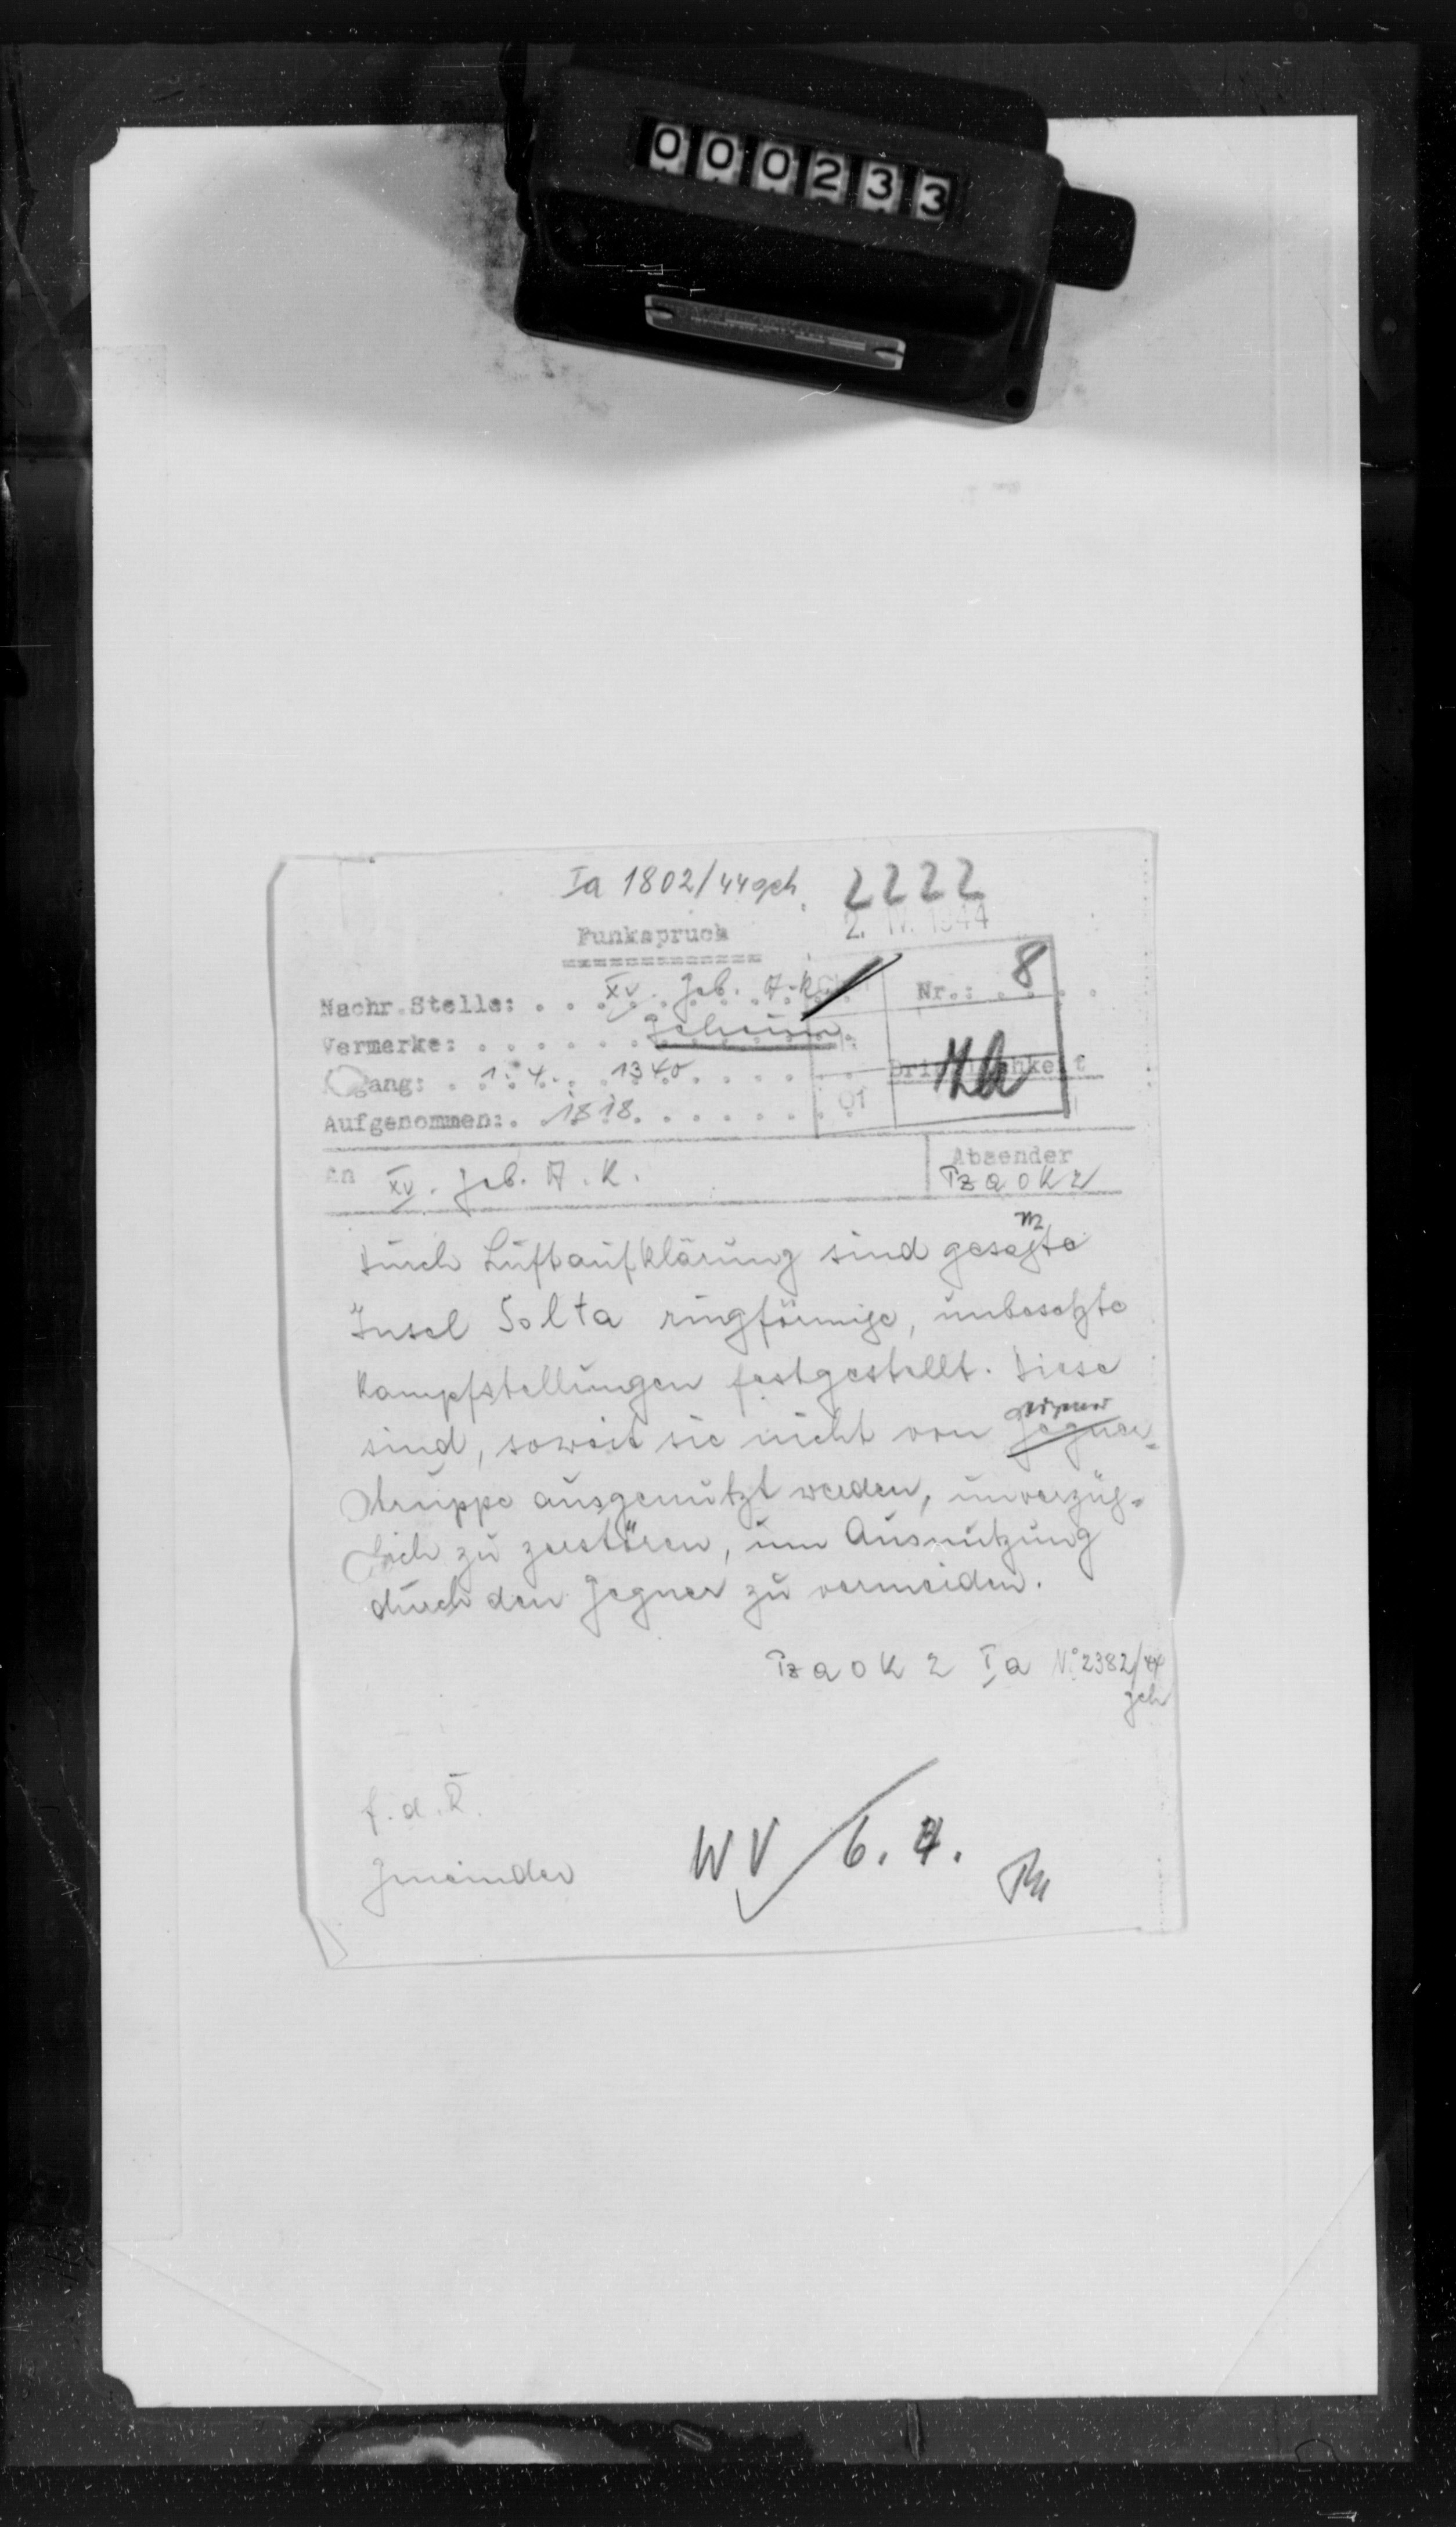 000233
Ia 1802/44 geh. 2222
2. IV. 1944
Funkspruch
Nachr.Stelle: XV. Geb. A.K. Nr.: 8
Vermerke: Geheim
gang: 1.4. 1340 Dringlichkeit
Aufgenommen: 1818 01
an XV. Geb. A.K. Absender
Pz A O K 2
Durch Luftaufklärung sind gesamte
Insel Solta ringförmige, unbesetzte
Kampfstellungen festgestellt. Diese
sind, soweit sie nicht von eigener Gegner-
truppe ausgenützt werden, unverzüg-
lich zu zerstören, um Ausnützung
durch den Gegner zu vermeiden.
Pz A O K 2 Ia No 2382/44
geh
f.d.R.
Gmeinder
WV 6.4.